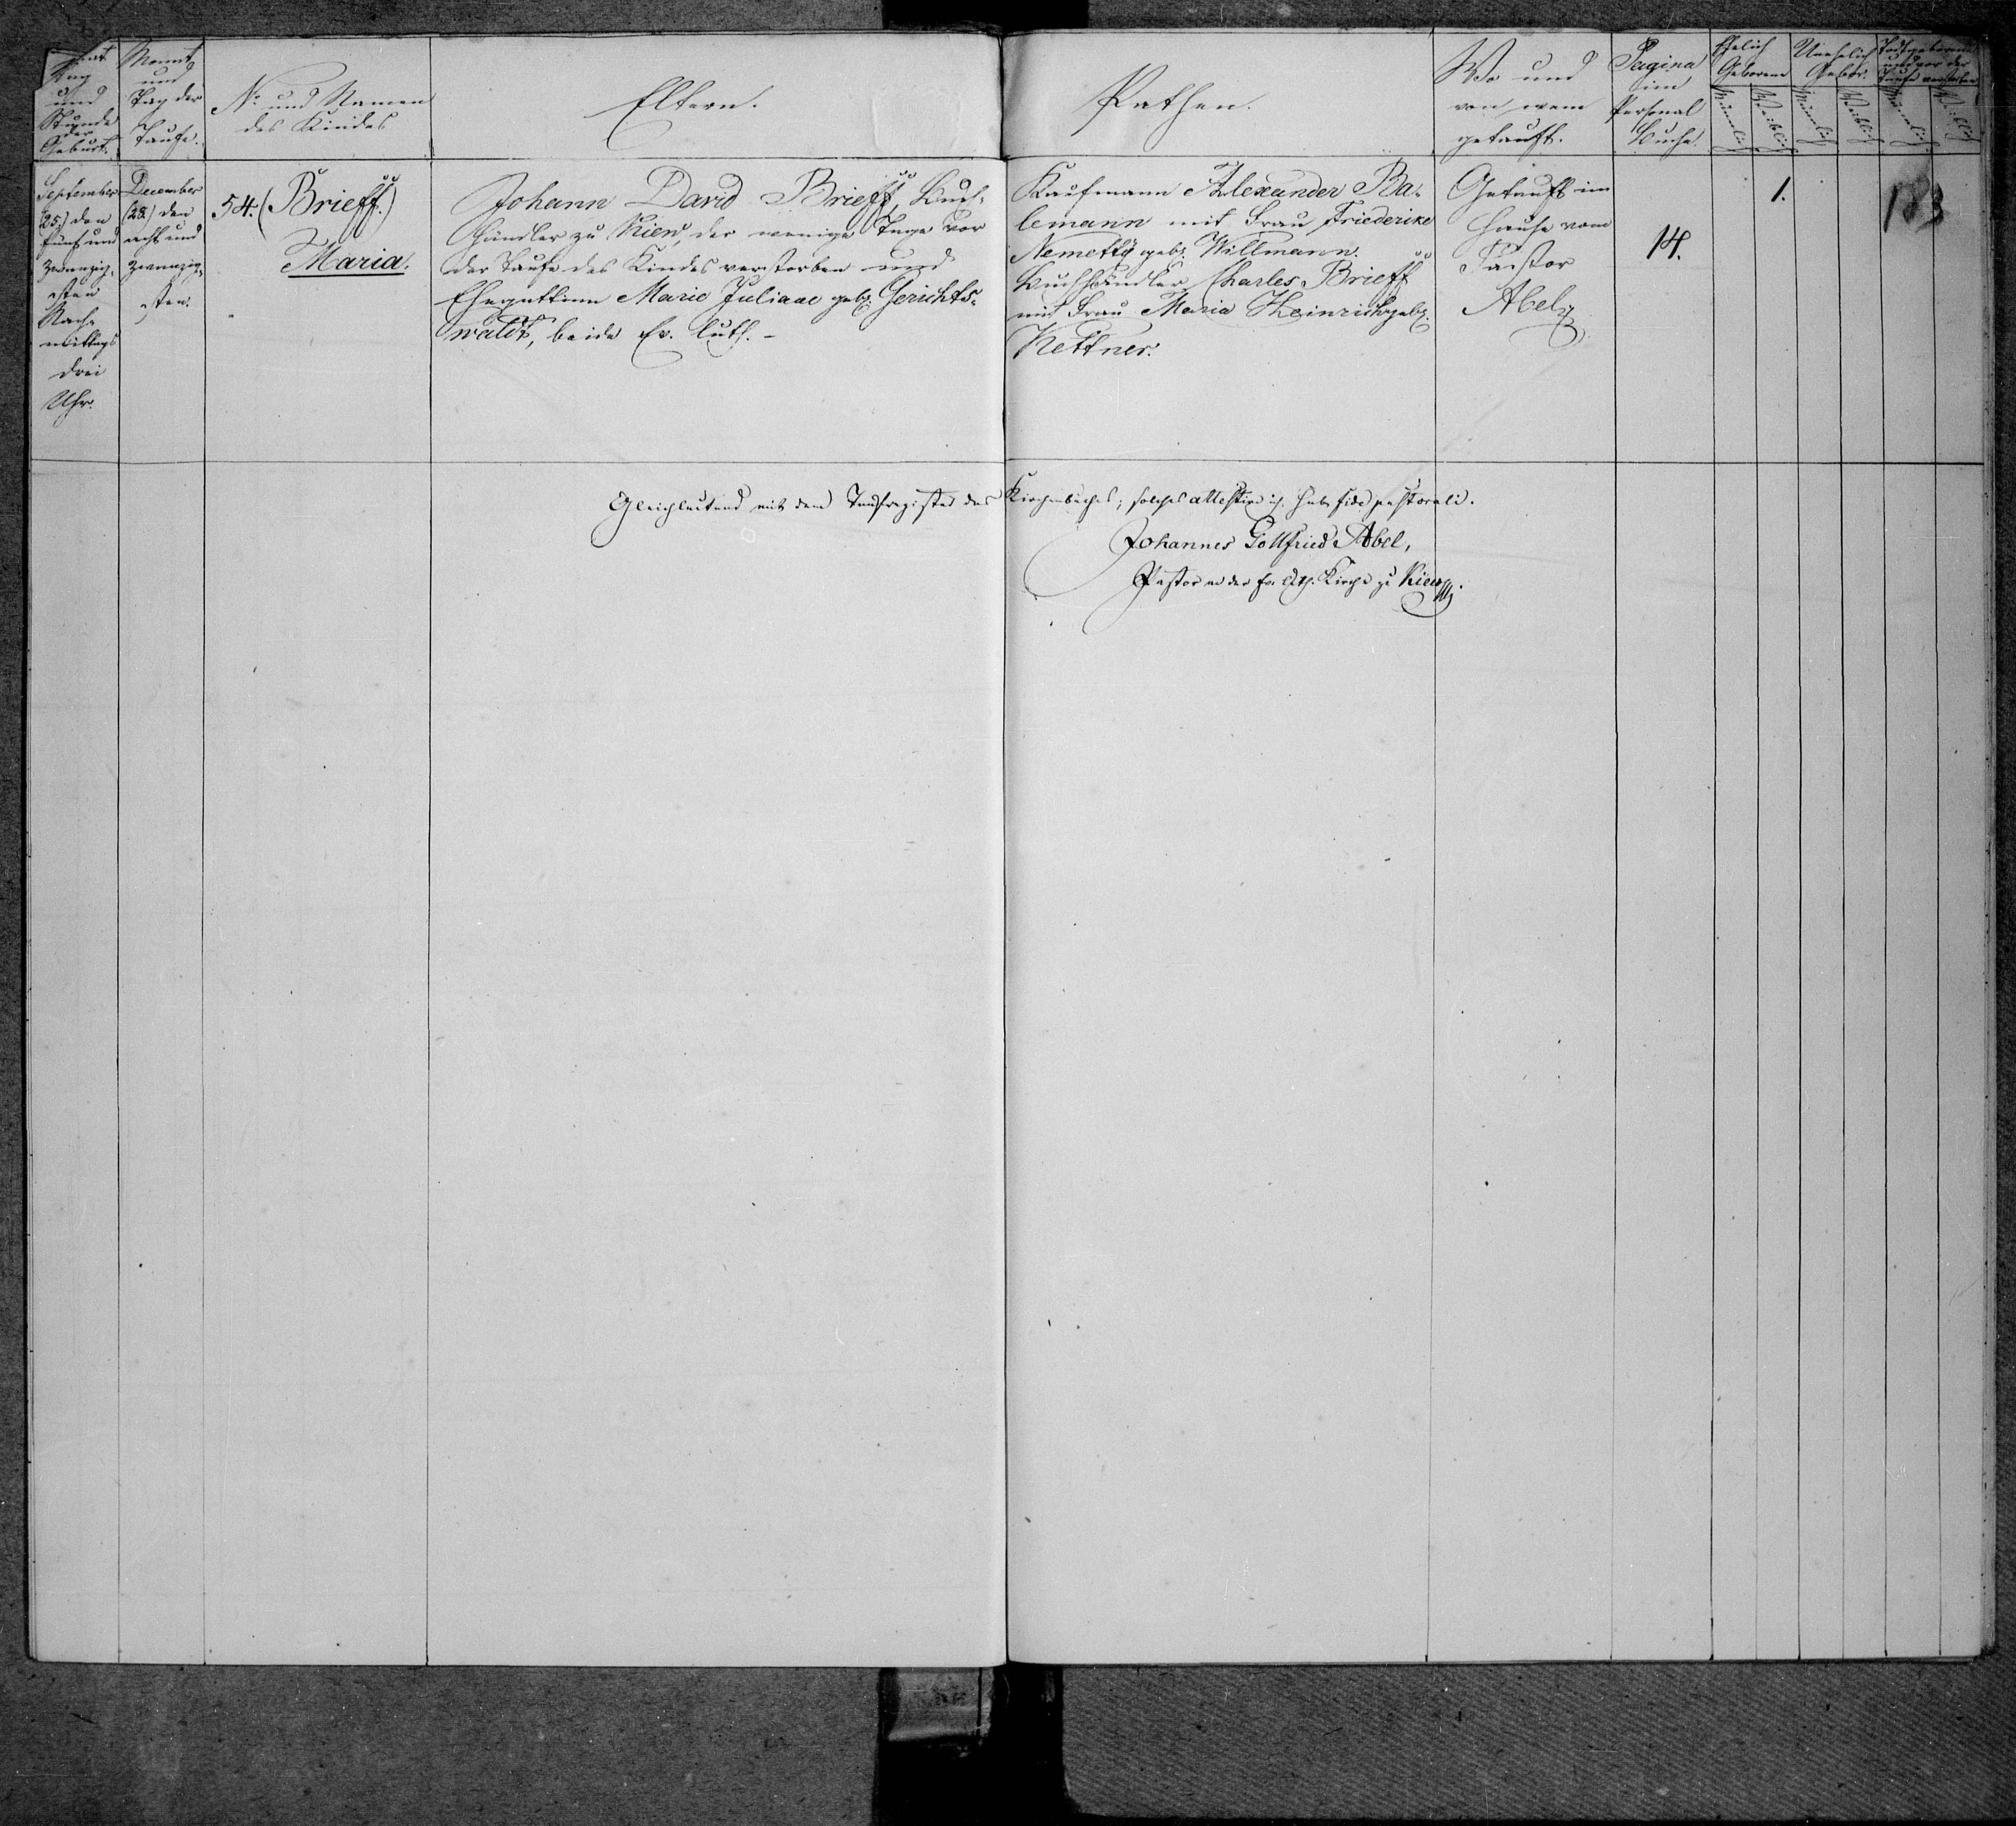 Tag
und
Stunde
der
Geburt.
Monat
und
Tag der
Taufe.
No und Namen
des Kindes
Eltern.
Pathen.
Wo und
von wem
getauft.
Pagina
im
Personal
Buche.
Ehelich
Geborene
Unehelich
Gebor.
Todtgeborene
und vor der
Taufe verstorben
Männlich
Weiblich
Männlich
Weiblich
Männlich
Weiblich
September
(25.) den
fünf und
zwanzig-
sten
Nach-
mittags
drei
Uhr.
December
(28.) den
acht und
zwanzig-
sten.
54. (Brieff.)
Maria.
Johann David Brieff, Buch-
händler zu Kiew, der wenige Tage vor
der Taufe des Kindes verstorben und
Ehegattinn Marie Juliane geb. Gerichts-
waldt, beide Ev. luth. -
Kaufmann Alexander Ba-
lemann mit Frau Friederike
Nemetty geb. Willmann.
Buchhändler Charles Brieff
mit Frau Maria Heinrich geb.
Kettner.
Getauft im
Hause vom
Pastor
Abel
14.
1.
183
Gleichlautend mit dem Taufregister des Kirchenbuches; solches attestire ich sub fide pastorali.
Johannes Gottfried Abel,
Pastor an der Ev. Luth. Kirche zu Kiew.